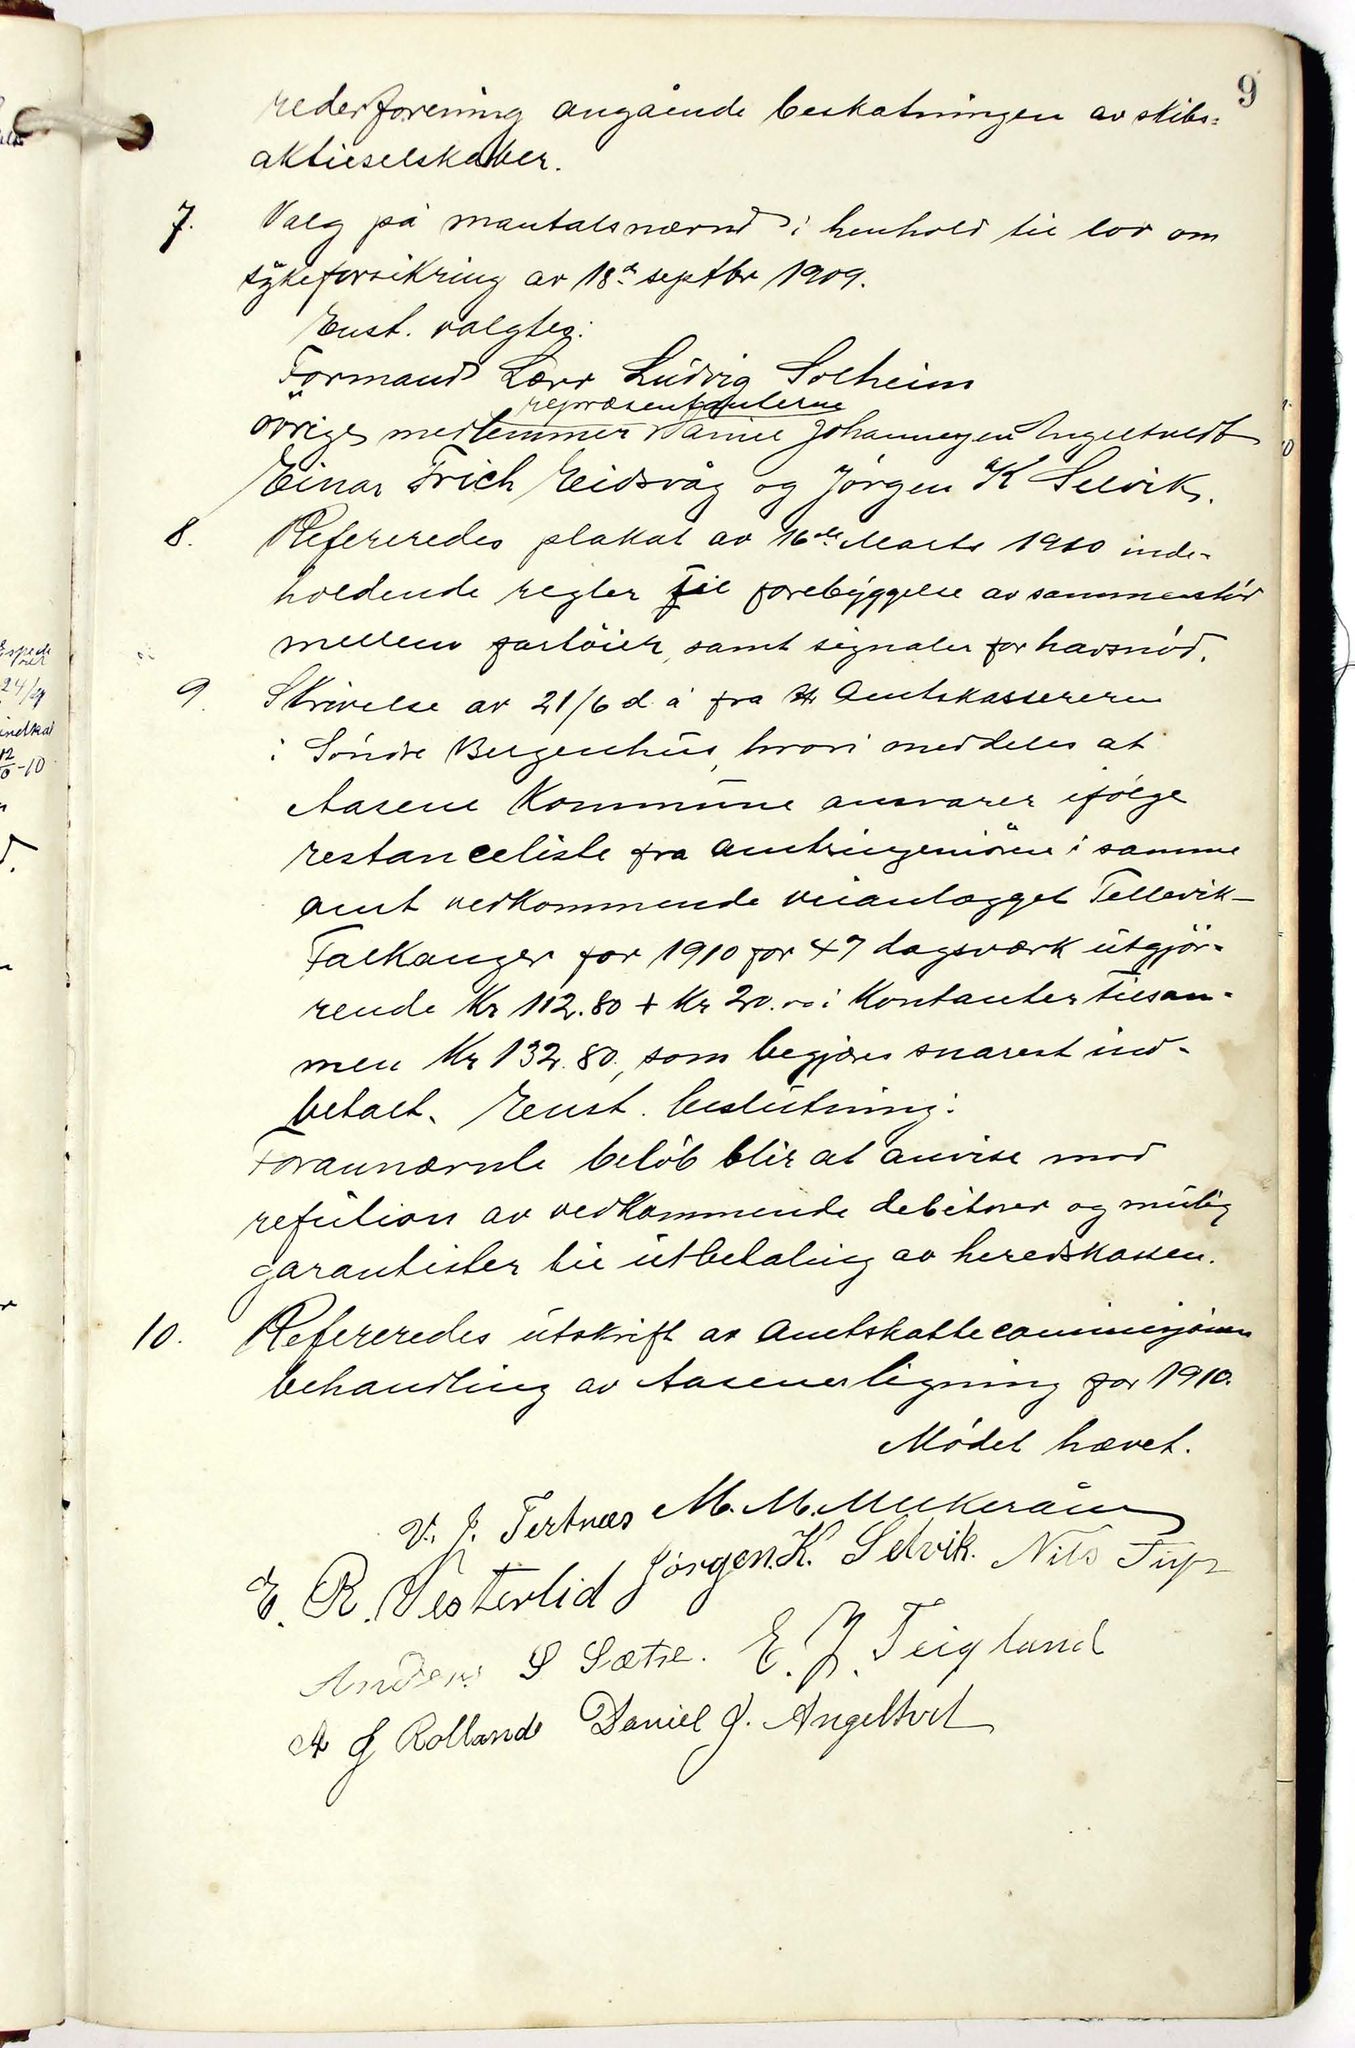 9
rederforening angående beskatningen av skibs-
aktieselskaber.
7. Valg på mantalsnævnd i henhold til lov om
sykeforsikring av 18de septbr 1909.
Enst. valgtes:
Formand Lærer Ludvig Solheim
repræsentanterne
øvrige medlemmer Daniel Johannesen Angeltvedt
Einar Frich Eidsvåg og Jørgen K Selvik.
8. Refereredes plakat av 16de Marts 1910 inde-
holdende regler til forebyggelse av sammenstöd
mellem fartöier, samt signaler for havsnöd.
9. Skrivelse av 21/6 d. å fra Hr Amtskassereren
i Söndre Bergenhus, hvori meddeles at
Aasene Kommune ansvarer ifölge
restanceliste fra amtsingeniören i samme
amt vedkommende veianlægget Tellevik-
Falkanger for 1910 for 47 dagsværk utgjör-
rende Kr 112.80 + Kr 20.00 i Kontanter tilsam-
men Kr 132.80, som begjæres snarest ind-
betalt. Enst. beslutning:
Forannævnte belöb blir at anvise mod
refution av vedkommende debitorer og mulig
garantister til utbetaling av heredskassen.
10. Refereredes utskrift av Amtskattecommisjonens
behandling av Aasenes ligning for 1910.
Mödet hævet.
V. J. Tertnæs M. M.
E. R. Vesterlid Jørgen. K. Selvik. Nils
Anders S Sætre. E. J. Teigland
A J Rolland Daniel J. Angeltvet
Espede
24/9
indkal
12
-10